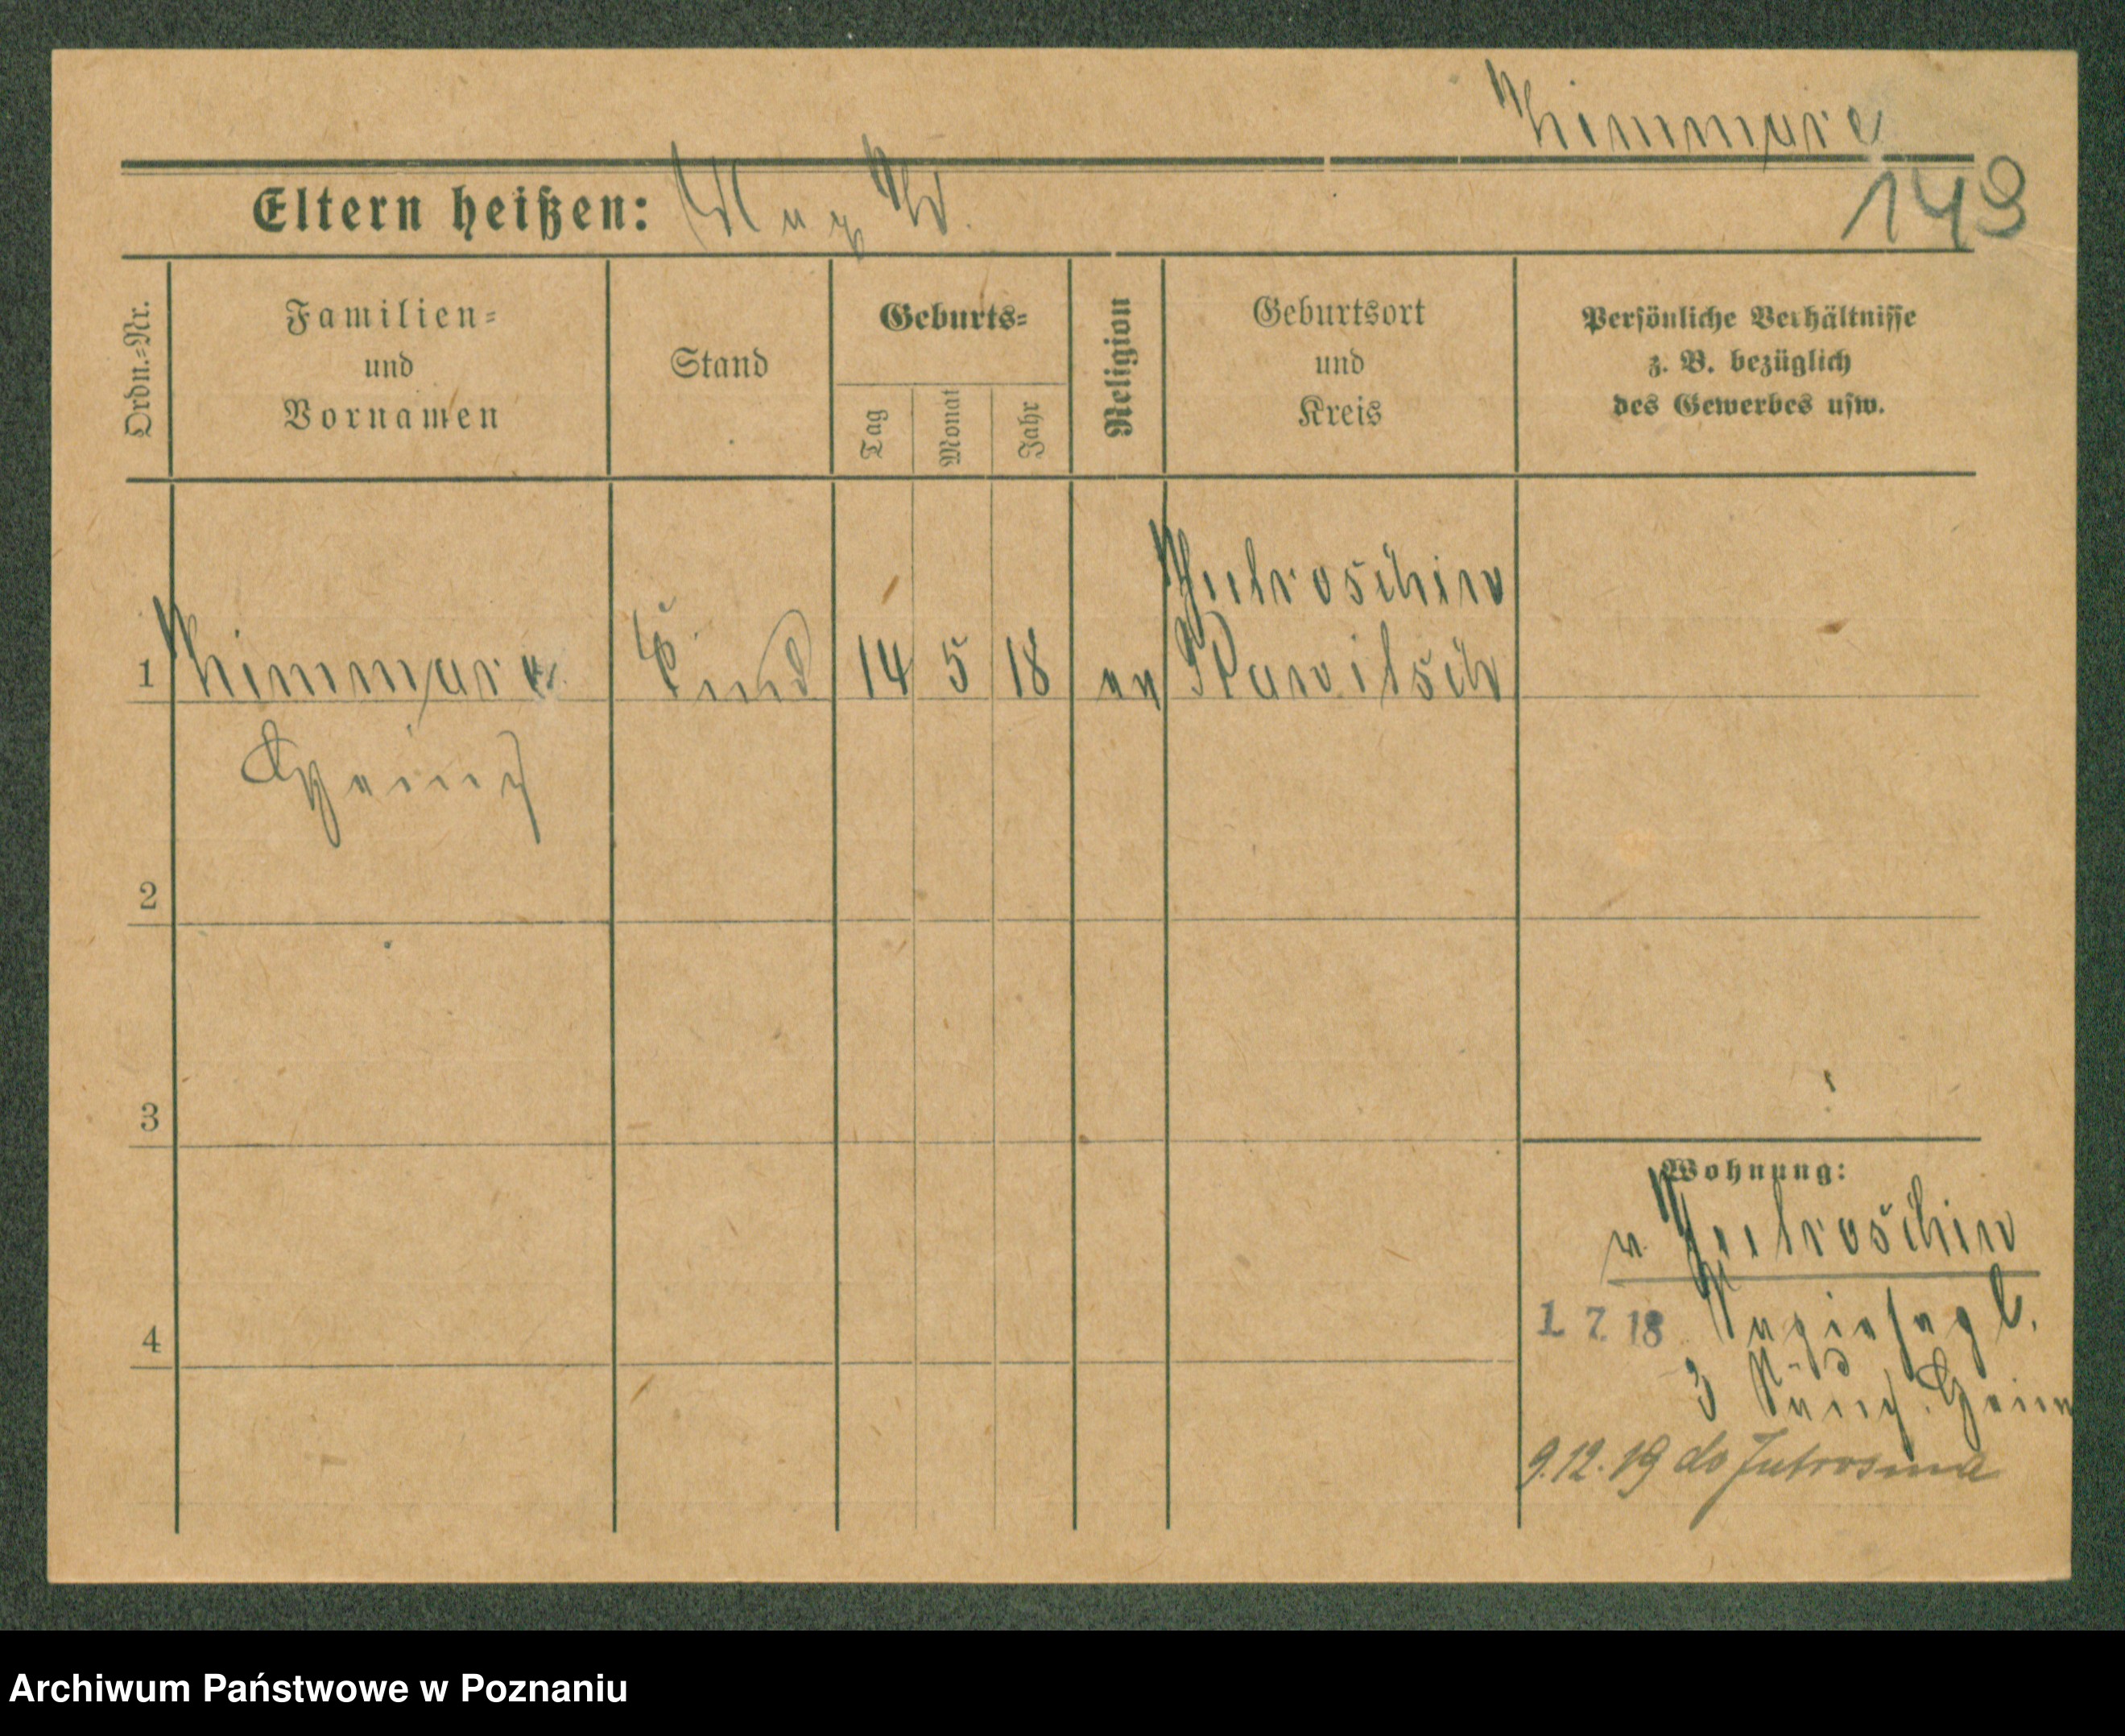 Zimmare
Eltern heißen:
149
Ordn.=Nr.
Familien=
und
Vornamen
Stand
Geburts=
Tag
Monat
Jahr
Religion
Geburtsort
und
Kreis
Persönliche Verhältnisse
z. B. bezüglich
des Gewerbes usw.
Jutroschin
1
Kind
14
5
18
ev
Rawitsch
Heinz
2
3
4
Wohnung:
v. Jutroschin
1. 7. 18
9.12.19 do Jutrosina
Archiwum Państwowe w Poznaniu